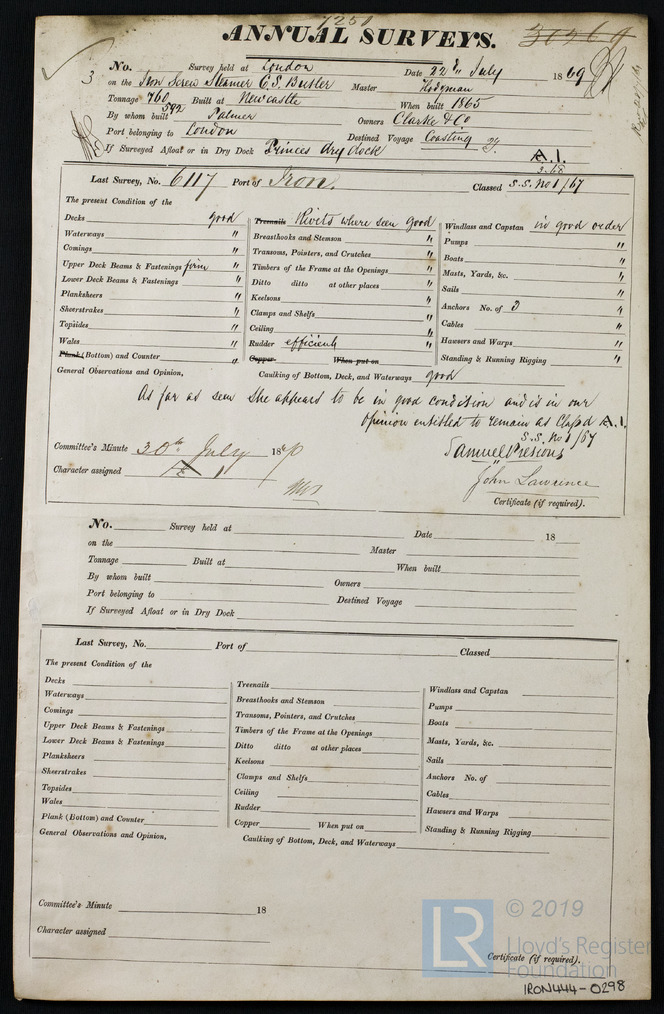 7250
ANNUAL SURVEYS. 30369
3 No. Survey held at London Date 22nd July 1869
on the Iron Screw Steamer C.S. Butler Master Hodyman
Tonnage 760 592 Built at Newcastle When built 1865
By whom built Palmer Owners Clarke & Co
Port belonging to London Destined Voyage Coasting
If Surveyed Afloat or in Dry Dock Princes dry dock
A.1.
3.68
Last Survey, No. 6117 Port of Iron. Classed S.S. No 1/67
The present Condition of the
Decks good
Waterways "
Comings "
Upper Deck Beams & Fastenings firm "
Lower Deck Beams & Fastenings "
Planksheers "
Sheerstrakes "
Topsides "
Wales "
Plank (Bottom) and Counter "
General Observations and Opinion,
Treenails Rivets where seen good
Breasthooks and Stemson "
Transoms, Pointers, and Crutches "
Timbers of the Frame at the Openings "
Ditto ditto at other places "
Keelsons "
Clamps and Shelfs "
Ceiling "
Rudder efficient "
Copper When put on
Caulking of Bottom, Deck, and Waterways good
Windlass and Capstan in good order
Pumps "
Boats "
Masts, Yards, &c. "
Sails "
Anchors No. of 3 "
Cables "
Hawsers and Warps "
Standing & Running Rigging "
As far as seen she appears to be in good condition and is in our
opinion entitled to remain as Class'd A.1.
S.S. No 1/67
Committee's Minute 30th July 18
Character assigned A 1
Samuel Presious
John Lawrence
Certificate (if required).
No. Survey held at Date 18
on the Master
Tonnage Built at When built
By whom built Owners
Port belonging to Destined Voyage
If Surveyed Afloat or in Dry Dock
Last Survey, No. Port of Classed
The present Condition of the
Decks
Waterways
Comings
Upper Deck Beams & Fastenings
Lower Deck Beams & Fastenings
Planksheers
Sheerstrakes
Topsides
Wales
Plank (Bottom) and Counter
General Observations and Opinion,
Treenails
Breasthooks and Stemson
Transoms, Pointers, and Crutches
Timbers of the Frame at the Openings
Ditto ditto at other places
Keelsons
Clamps and Shelfs
Ceiling
Rudder
Copper When put on
Caulking of Bottom, Deck, and Waterways
Windlass and Capstan
Pumps
Boats
Masts, Yards, &c.
Sails
Anchors No. of
Cables
Hawsers and Warps
Standing & Running Rigging
Committee's Minute 18
Character assigned
Certificate (if required).
LR © 2019
Lloyd's Register
Foundation
IRON444-0298